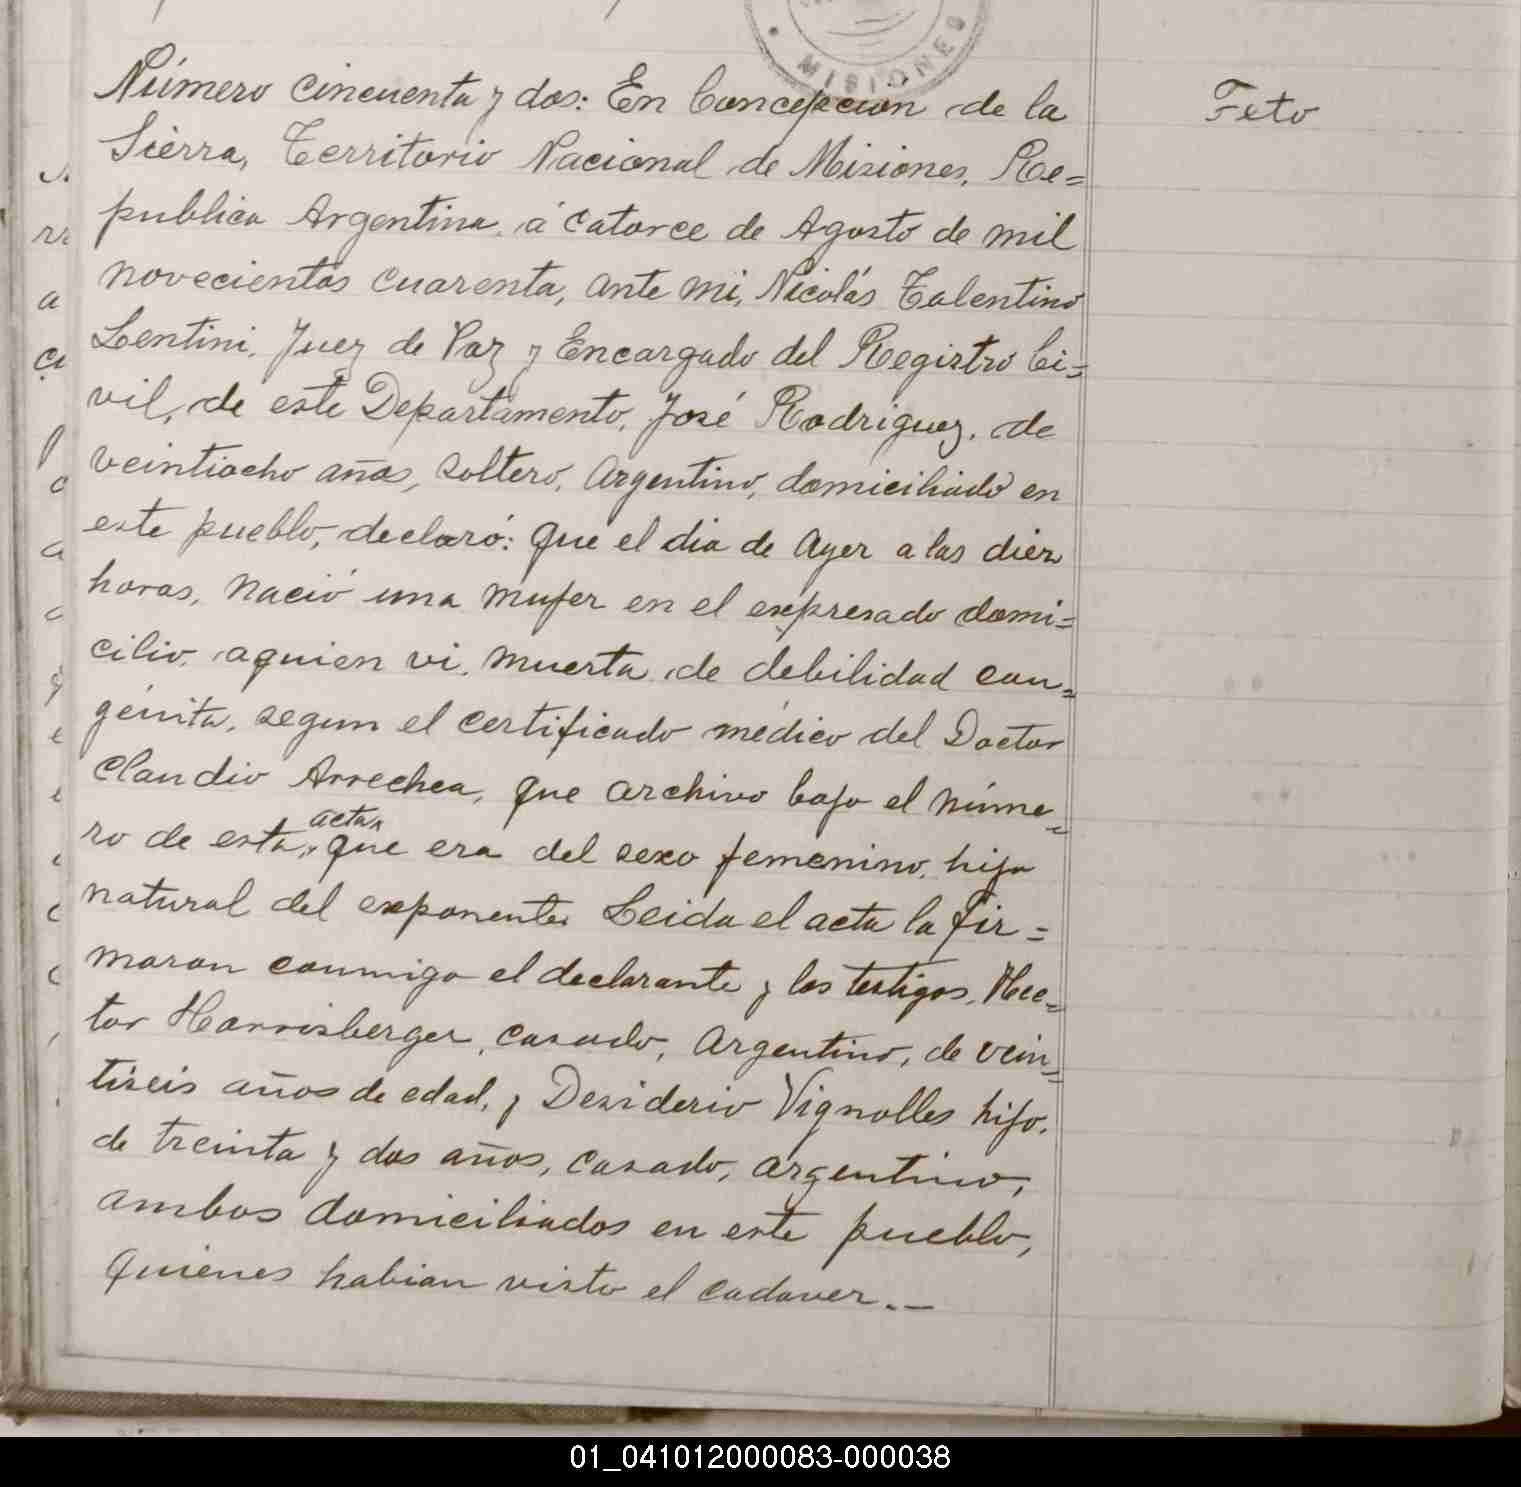 MISIONES
Número cincuenta y dos: En Concepción de la
Feto
Sierra, Territorio Nacional de Misiones, Re=
publica Argentina, á catorce de Agosto de mil
novecientos cuarenta, ante mi, Nicolás Talentino
Lentini, Juez de Paz y Encargado del Registro Ci=
vil, de este Departamento, José Rodriguez, de
veintiocho años, soltero, argentino, domiciliado en
este pueblo, declaró: que el dia de ayer a las diez
horas, nació una mujer en el expresado domi=
cilio, aquien vi, muerta de debilidad con=
génita, segun el certificado médico del Doctor
Claudio Arrechea, que archivo bajo el núme=
acta
ro de esta, que era del sexo femenino, hija
natural del exponente. Leida el acta la fir=
maron conmigo el declarante y los testigos, Hec=
tor Harrisberger, casado, argentino, de vein=
tiseis años de edad, y Desiderio Vignolles hijo,
de treinta y dos años, casado, argentino,
ambos domiciliados en este pueblo,
quienes habian visto el cadaver.—
01_041012000083-000038